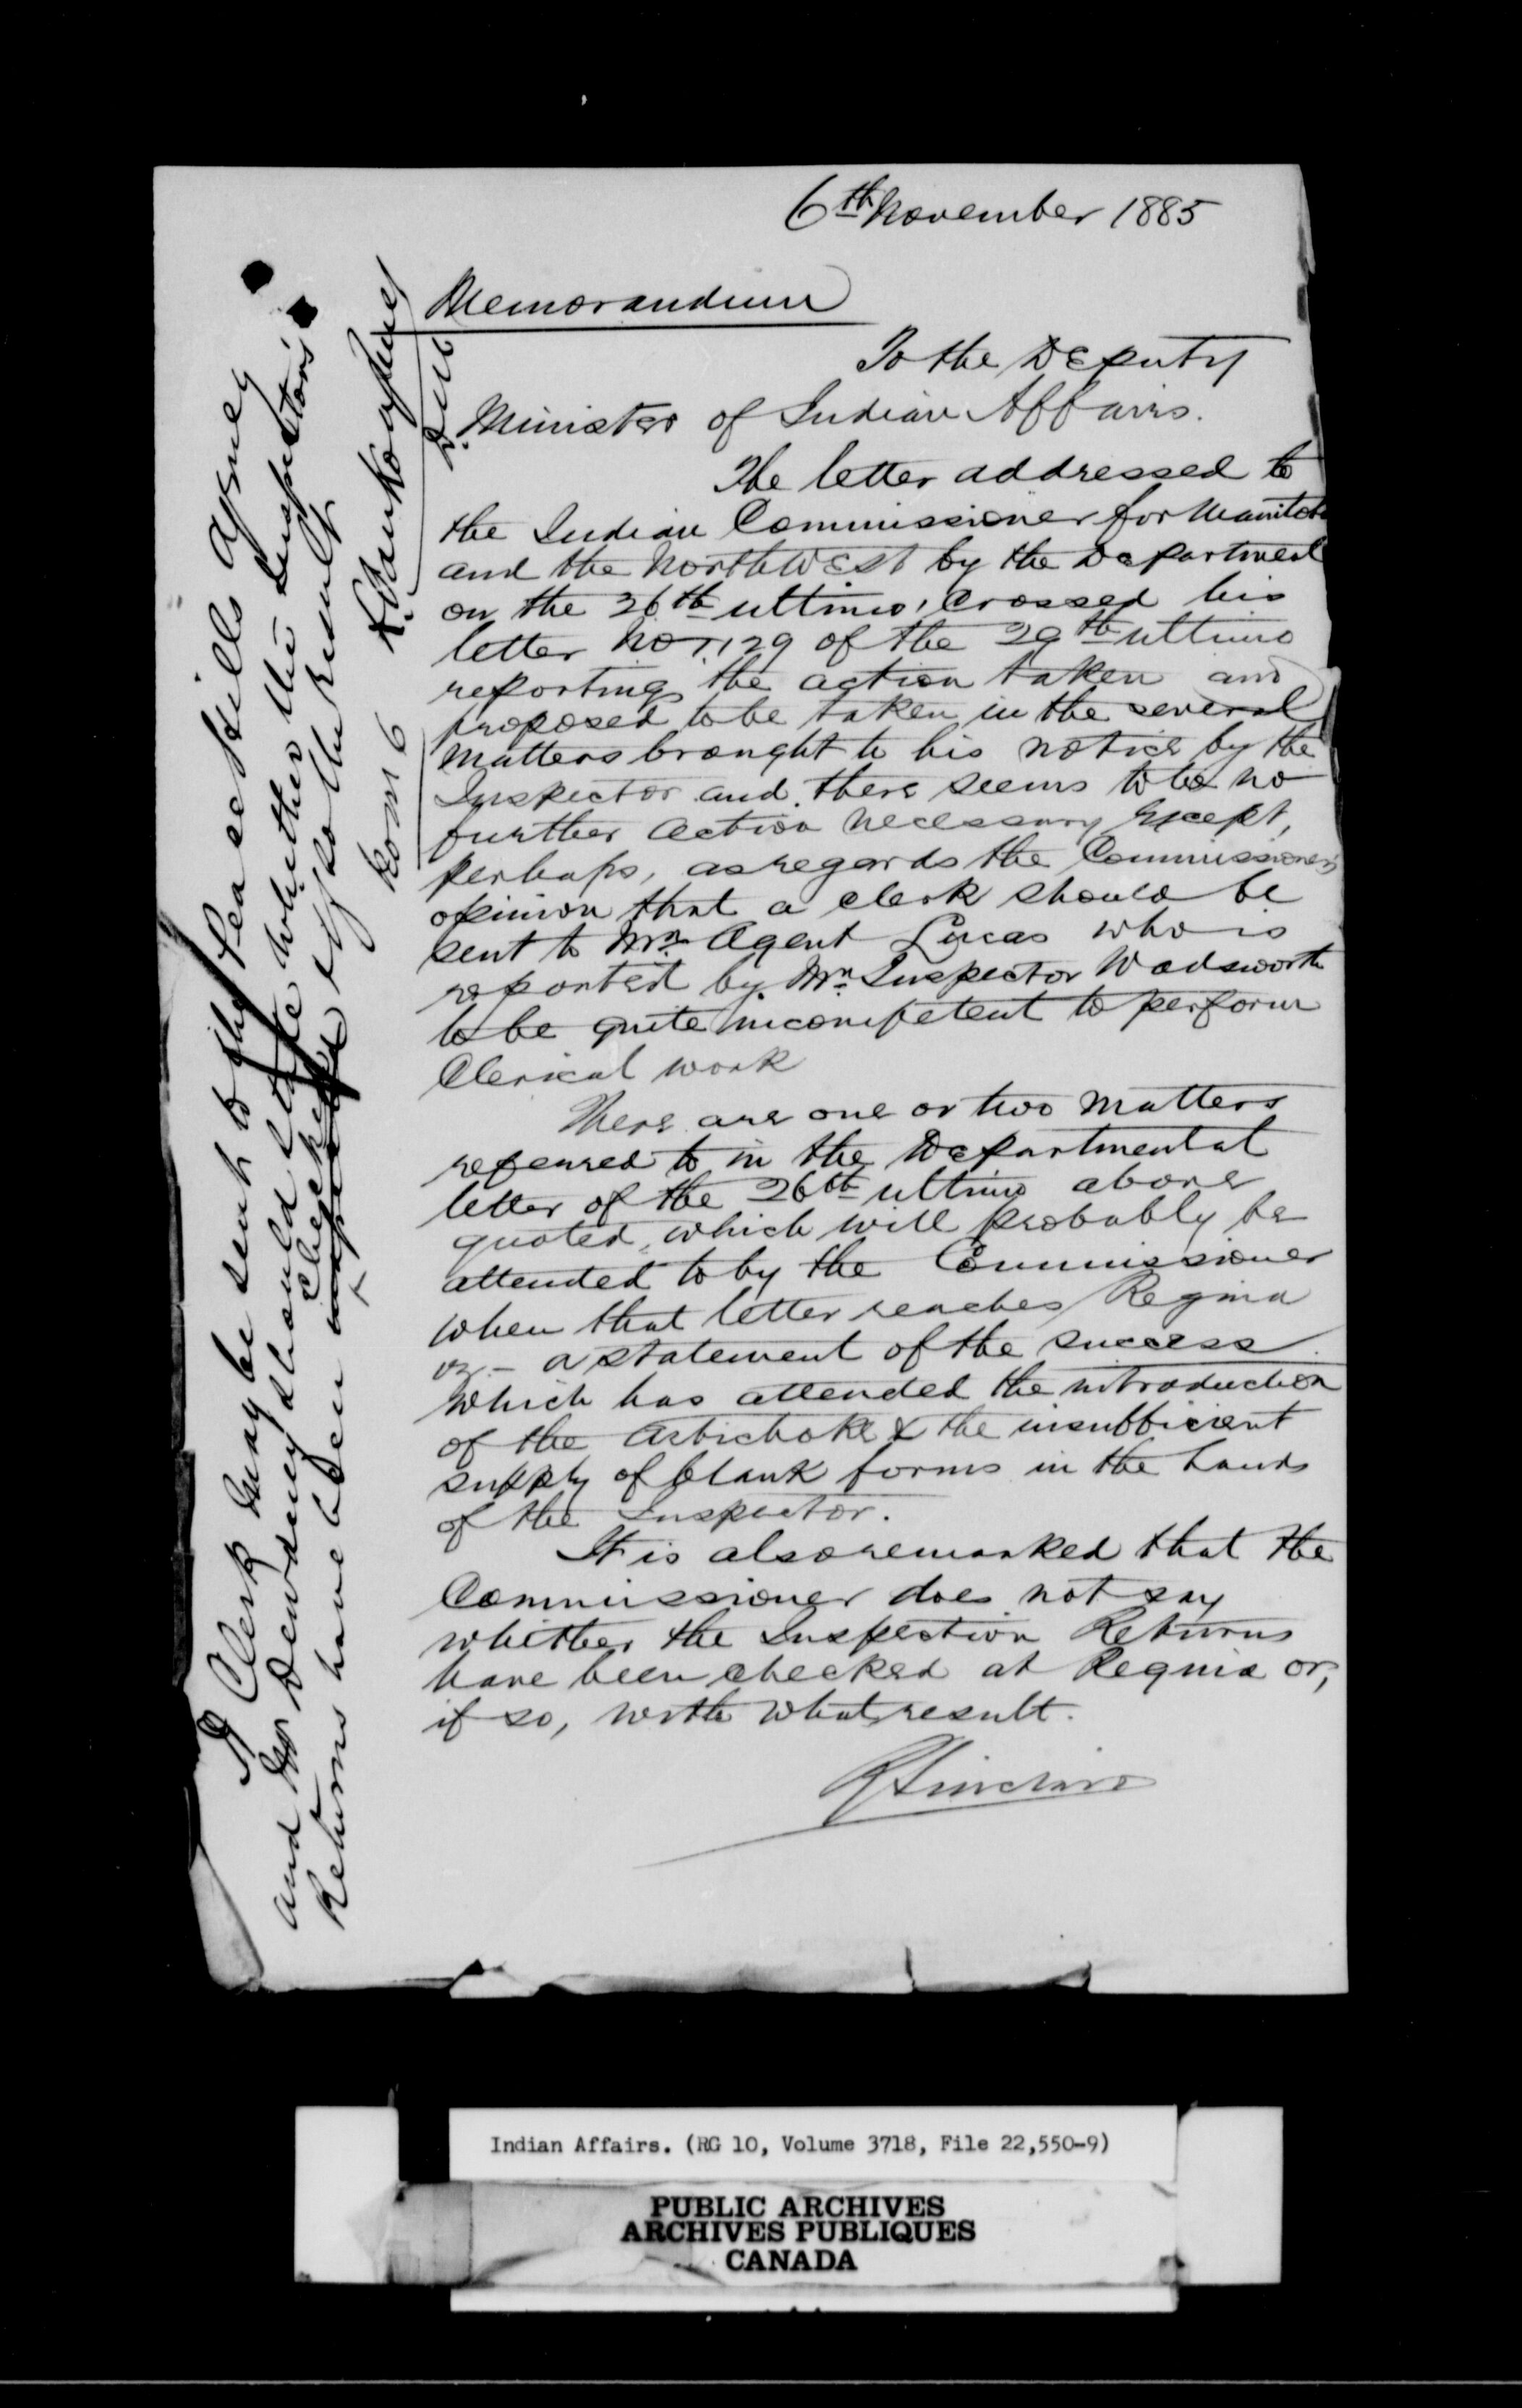 6th November 1885
Memorandum
To the Deputy
Minister of Indian Affairs.
The letter addressed to
the Indian Commissioner for Manitoba
and the North West by the Department
on the 26th ultimo, crossed his
letter No. 1129 of the 29th ultimo
reporting the action taken and
proposed to be taken in the several
matters brought to his notice by the
Inspector and there seems to be no
further action necessary except,
perhaps, as regards the Commissioner's
opinion that a clerk should be
sent to Mr. Agent Lucas who is
reported by Mr. Inspector Wadsworth
to be quite incompetent to perform
Clerical work
There are one or two matters
referred to in the Departmental
letter of the 26th ultimo above
quoted, which will probably be
attended to by the Commissioner
when that letter reaches Regina
vz - a statement of the success
which has attended the introduction
of the artichoke & the insufficient
supply of blank forms in the hands
of the Inspector.
It is also remarked that the
Commissioner does not say
whether the Inspection Returns
have been checked at Regina or,
if so, with what result.
R Sinclair
A Clerk may be sent to the Peace Hills Agency
and Mr Dewdney should state whether the Inspector's
Returns have been checked & if so the result
L. Vankoughnet
Nov 6
Indian Affairs. (RG 10, Volume 3718, File 22,550-9)
PUBLIC ARCHIVES
ARCHIVES PUBLIQUES
CANADA